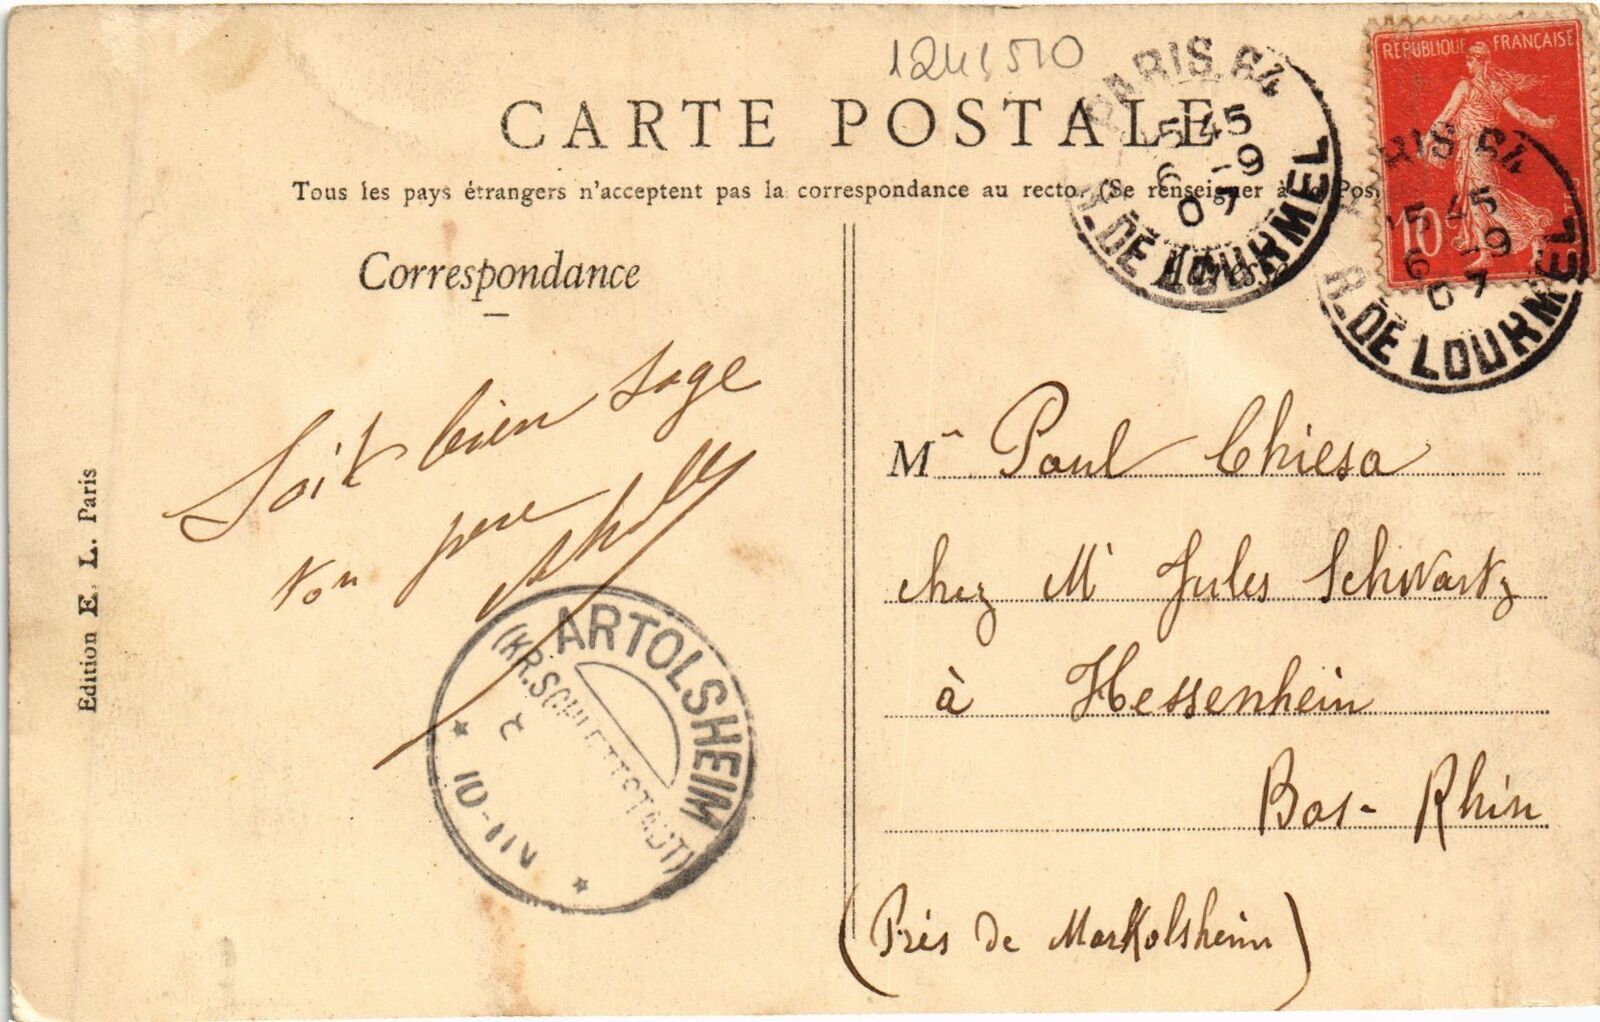 1241510
CARTE POSTALE
Tous les pays étrangers n'acceptent pas la correspondance au recto. (Se renseigner à la Pos
Correspondance
Adresse
REPUBLIQUE FRANÇAISE
10
PARIS 64
5 45
6 -9
07
R. DE LOURMEL
PARIS 64
15 45
6 -9
07
R. DE LOURMEL
Soit bien sage
ton père
Edition E. L. Paris
ARTOLSHEIM
(KR. SCHLETTSTADT)
10-11V
Mr Paul Chiesa
chez Mr Jules Schwartz
à Hessenhein
Bas-Rhin
(Près de Markolsheim)